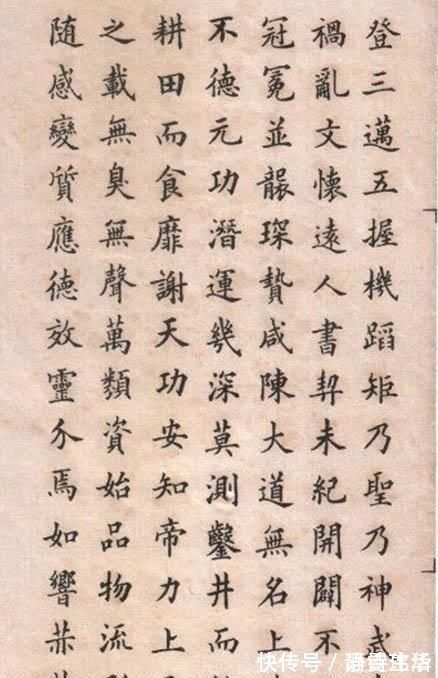 登三邁五握機蹈矩乃聖乃神武
禍亂文懷遠人書契未紀開闢不
冠冕並襲琛贄咸陳大道無名上
不德元功潛運幾深莫測鑿井而
耕田而食靡謝天功安知帝力上
之載無臭無聲萬類資始品物流
随感變質應德效靈介焉如響
快传号／